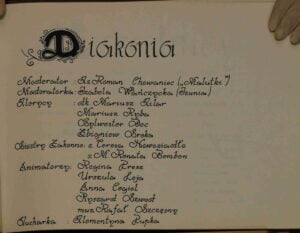 Diakonia
Moderator : ks. Roman Chowaniec („Malutki")
Moderatorka: Izabela Wańczycka (Izunia)
Klerycy : dk. Mariusz
Mariusz Ryba
Sylwester Boc
Zbigniew Sroka
Siostry Zakonne: s. Teresa
s. M. Renata Bombon
Animatorzy: Regina Presz
Urszula Leja
Anna Cegieł
Ryszard Szwast
muz. Rafał Szczęsny
Kucharka : Klementyna Pupka